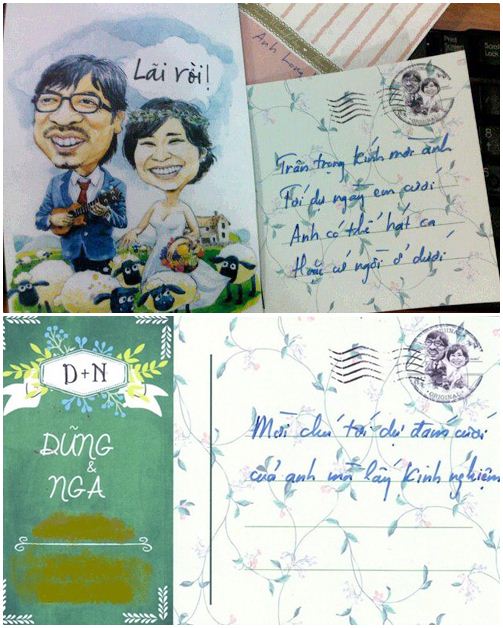 Anh Long
Lãi rồi!
Trân trọng kính mời anh
Tới dự ngày em cưới
Anh có thể hát ca
Hoặc cứ ngồi ở dưới
D+N
DŨNG
&
NGA
ORIGINAL
Mời chú tới dự đám cưới
của anh mà lấy kinh nghiệm